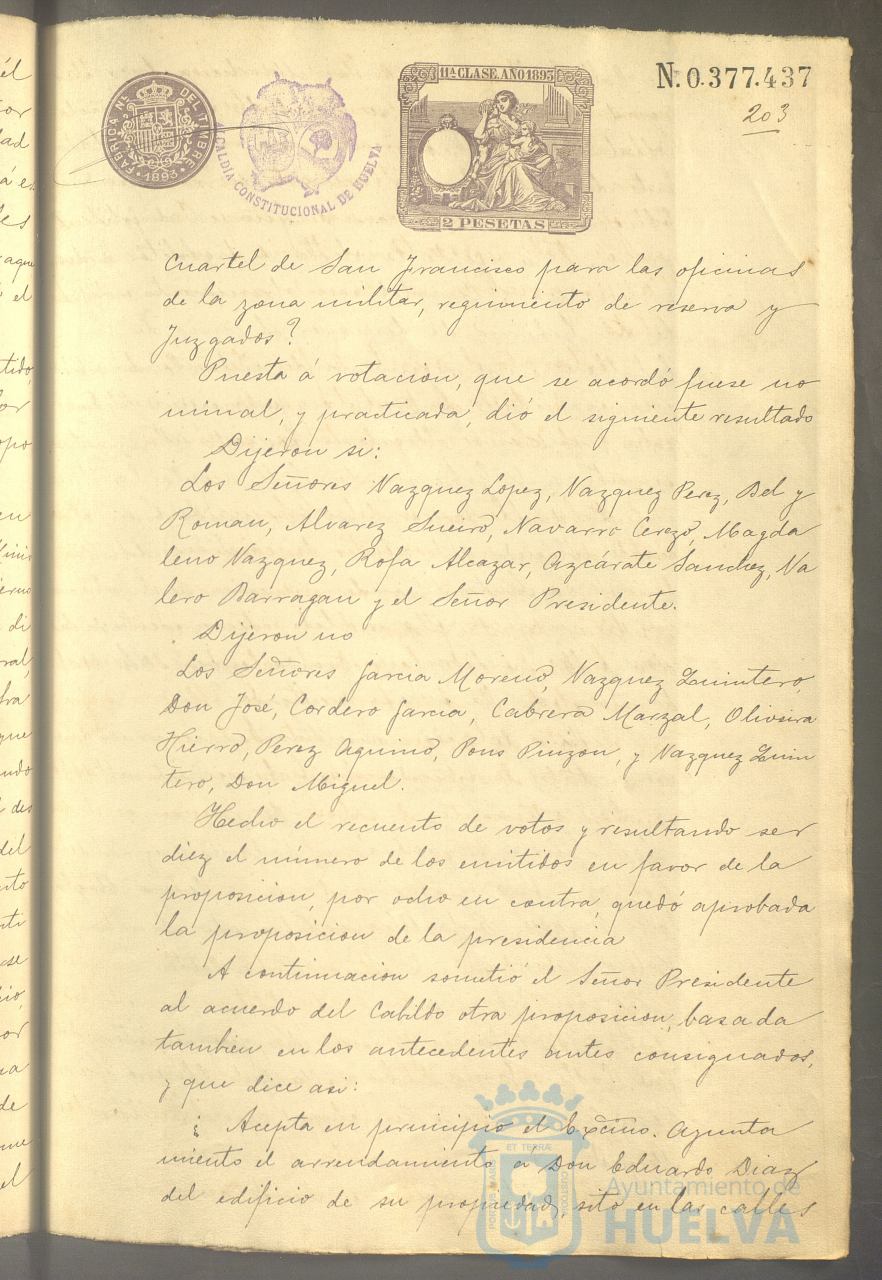 FABRICA Nª DEL TIMBRE
1893
ALCALDIA CONSTITUCIONAL DE HUELVA
11ª CLASE. AÑO 1893
2 PESETAS
N. 0.377.437
203
Cuartel de San Francisco para las oficinas
de la zona militar, regimiento de reserva y
Juzgados?
Puesta á votacion, que se acordó fuese no
minal, y practicada, dió el siguiente resultado
Dijeron si:
Los Señores Vazquez Lopez, Vazquez Perez, Bel y
Roman, Alvarez Sueiro, Navarro Cerezo, Magda
leno Vazquez, Rofa Alcazar, Azcárate Sanchez, Va
lero Barragan y el Señor Presidente.
Dijeron no
Los Señores Garcia Moreno, Vazquez Quintero,
Don José, Cordero Garcia, Cabrera Marzal, Oliveira
Hierro, Perez Aquino, Pons Pinzon, y Vazquez Quin
tero, Don Miguel.
Hecho el recuento de votos y resultando ser
diez el número de los emitidos en favor de la
proposicion, por ocho en contra, quedó aprobada
la proposicion de la presidencia
A continuacion sometió el Señor Presidente
al acuerdo del Cabildo otra proposicion, basada
tambien en los antecedentes antes consignados,
y que dice asi:
¿ Acepta en principio el Excmo. Ayunta
miento el arrendamiento á Don Eduardo Diaz
del edificio de su propiedad, sito en las calles
PORTUS MARIS ET TERRÆ CUSTODIA
Ayuntamiento de
HUELVA